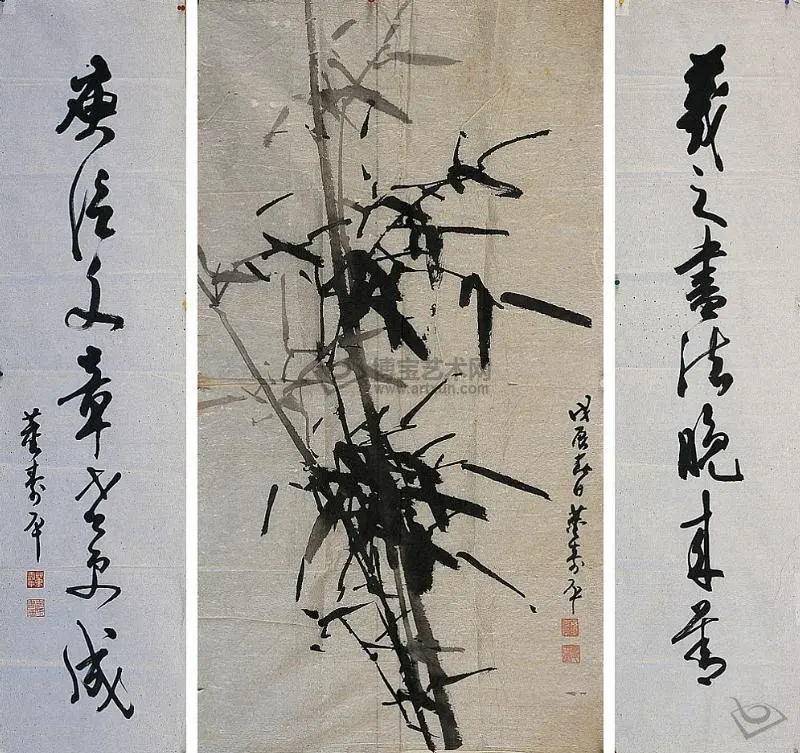 羲之書法晚来善
戊辰春日董寿平
庾信文章老更成
董寿平
博宝艺术网
www.artxun.com